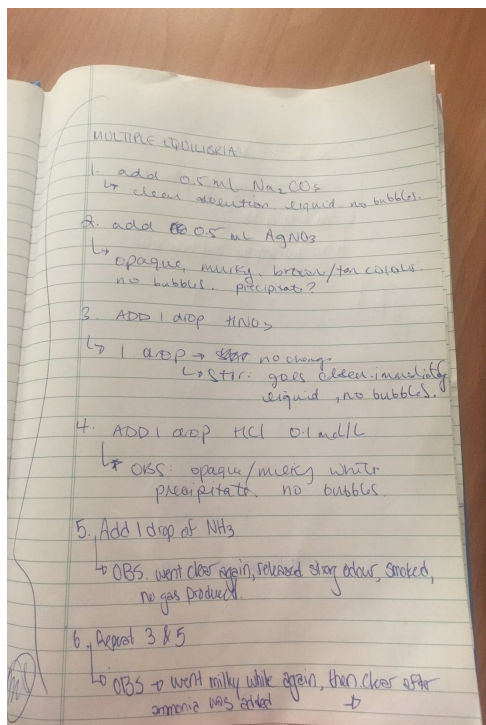 MULTIPLE EQUILIBRIA
1. add 0.5 mL Na2CO3
↳ clear liquid. no bubbles.
2. add 0.5 mL AgNO3
↳ opaque, milky. brown/tan colour.
no bubbles. precipitate?
3. ADD 1 drop HNO3
↳ 1 drop → no change
↳ stir: goes clear immediately
liquid, no bubbles.
4. ADD 1 drop HCl 0.1 mol/L
↳ OBS: opaque/milky white
precipitate. no bubbles.
5. Add 1 drop of NH3
↳ OBS. went clear again, released strong odour, smoked,
no gas product.
6. Repeat 3 & 5
↳ OBS → went milky white again, then clear after
ammonia was added